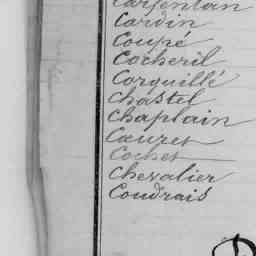 Carpentan
Cardin
Coupé
Cocheril
Corguillé
Chastel
Chaplain
Cauret
Cochet
Chevalier
Coudrais
D